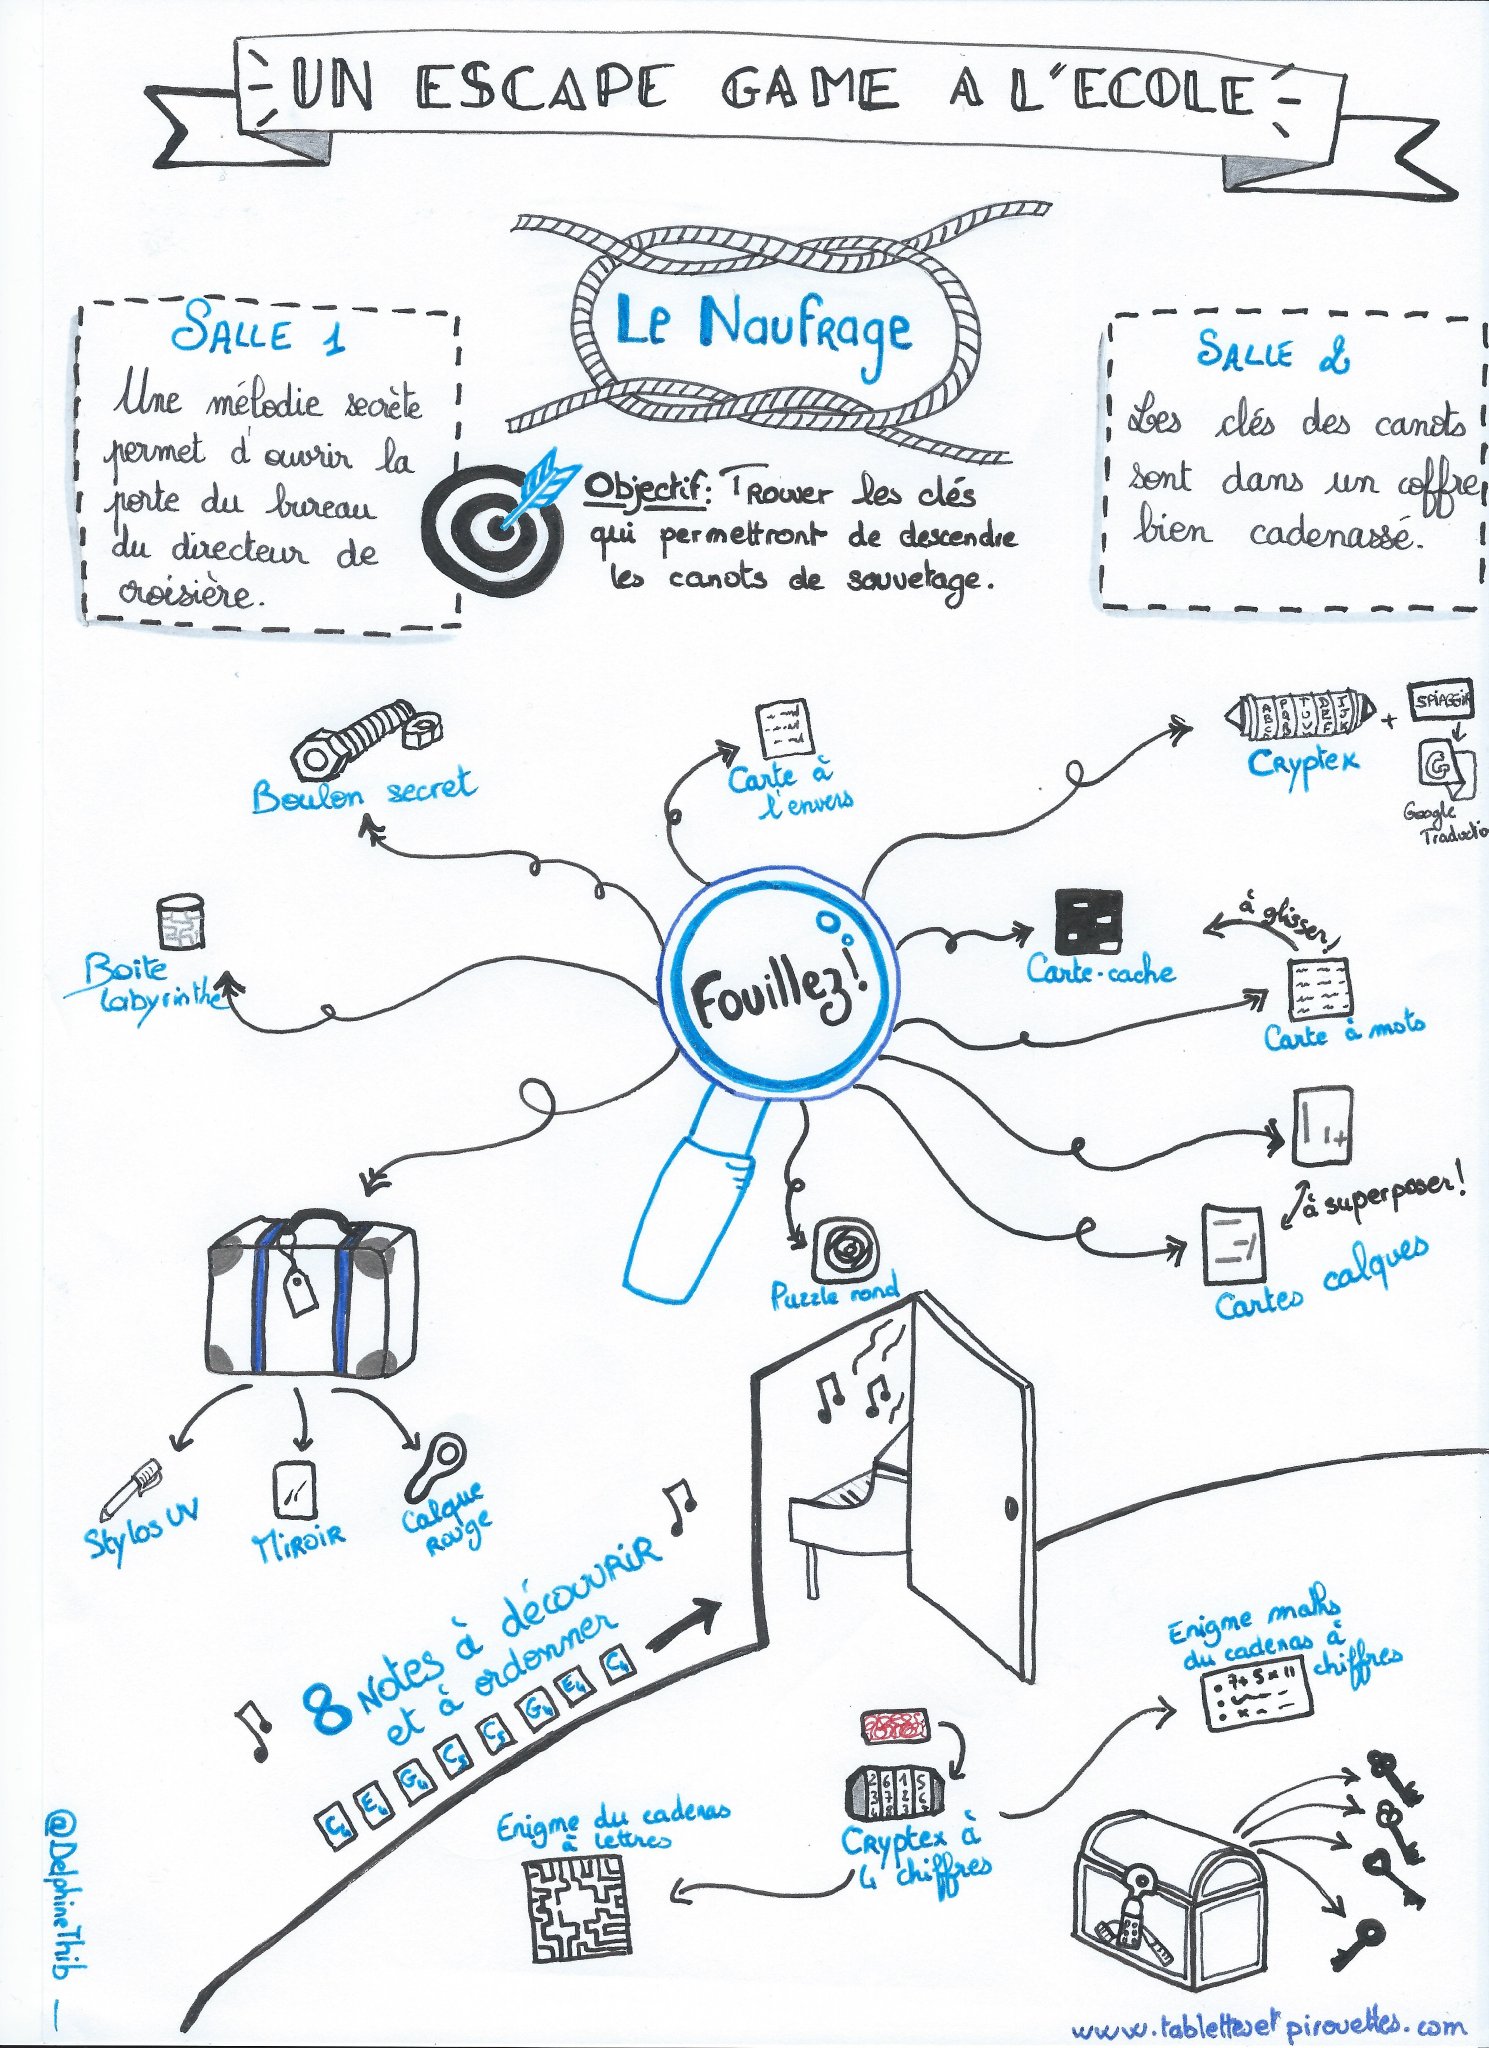 UN ESCAPE GAME A L'ECOLE
Le Naufrage
SALLE 1
Une mélodie secrète
permet d'ouvrir la
porte du bureau
du directeur de
croisière.
Objectif: Trouver les clés
qui permettront de descendre
les canots de sauvetage.
SALLE 2
Les clés des canots
sont dans un coffre
bien cadenassé.
Boulon secret
Carte à
l'envers
Cryptex
SPIAGGIA
G
Google
Traduction
Boite
labyrinthe
Fouillez!
Carte-cache
à glisser!
Carte à mots
à superposer!
Cartes calques
Puzzle rond
Stylos UV
Miroir
Calque
rouge
8 Notes à découvrir
et à ordonner
C4 E4 G4 C5 C5 G4 E4 C4
Enigme maths
du cadenas à
chiffres
7+5x11
2 6 1 5
3 7 2 6
Cryptex à
4 chiffres
Enigme du cadenas
à lettres
@DelphineThib
www.tablettesetpirouettes.com